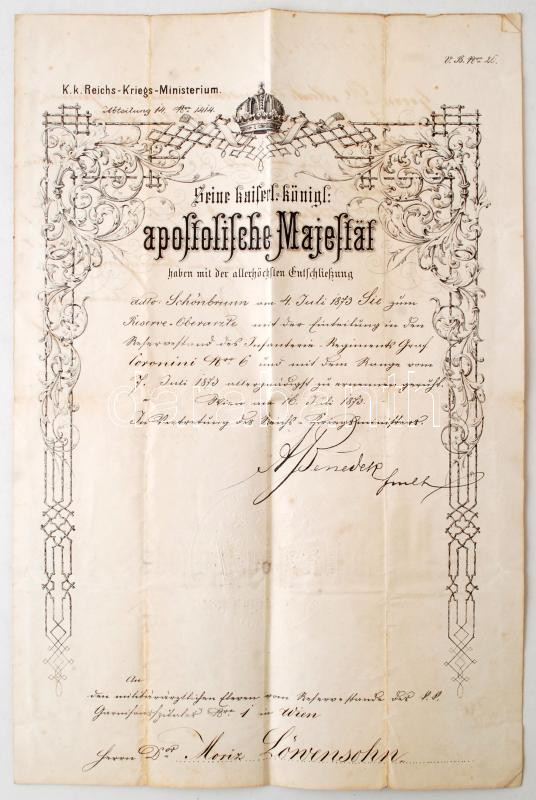 V. B. Nro 26.
K. k. Reichs-Kriegs-Ministerium.
Abteilung 14. Nro 1414.
Seine kaiserl. königl:
apostolische Majestät
haben mit der allerhöchsten Entschließung
ddto: Schönbrunn am 4. Juli 1873 Sie zum
Reserve-Oberarzte mit der Eintheilung in den
Reservestand des Infanterie-Regiments Graf
Coronini Nro 6 und mit dem Range vom
7. Juli 1873 allergnädigst zu ernennen geruht.
Wien am 16. Juli 1873.
In Vertretung des Reichs-Kriegsministers
A Benedek
fmlt
An
den militärärztlichen Eleven vom Reservestande des k.k.
Garnisonsspitales Nro 1 in Wien
Herrn Dor Moriz Löwensohn.
darabanth